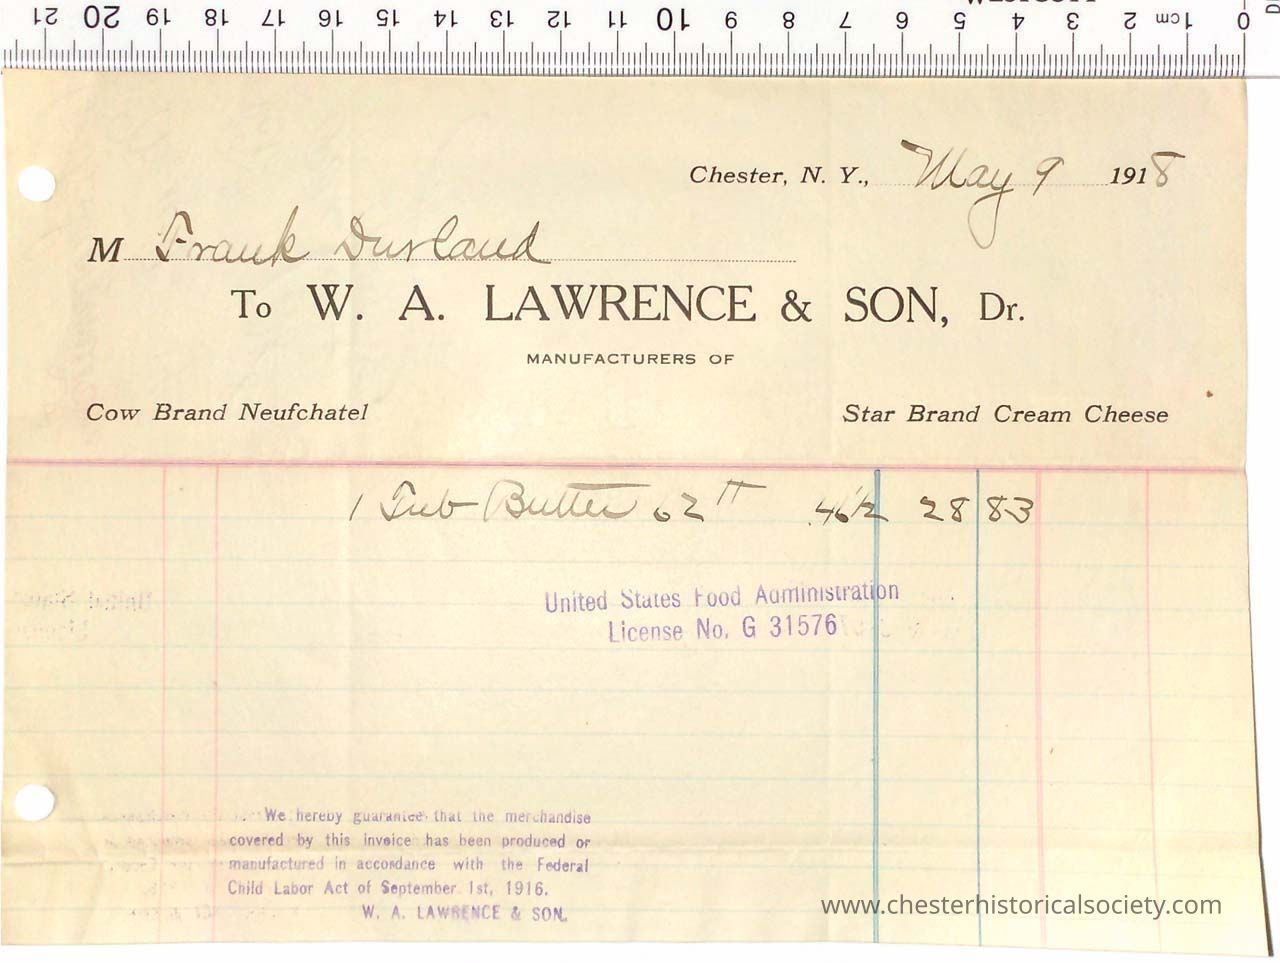 21 20 19 18 17 16 15 14 13 12 11 10 9 8 7 6 5 4 3 2 1cm 0
Chester, N. Y., May 9 1918
M Frank Durland
To W. A. LAWRENCE & SON, Dr.
MANUFACTURERS OF
Cow Brand Neufchatel Star Brand Cream Cheese
1 Tub Butter 62 46½ 28 83
United States Food Administration
License No. G 31576
We hereby guarantee that the merchandise
covered by this invoice has been produced or
manufactured in accordance with the Federal
Child Labor Act of September 1st, 1916.
W. A. LAWRENCE & SON.
www.chesterhistoricalsociety.com